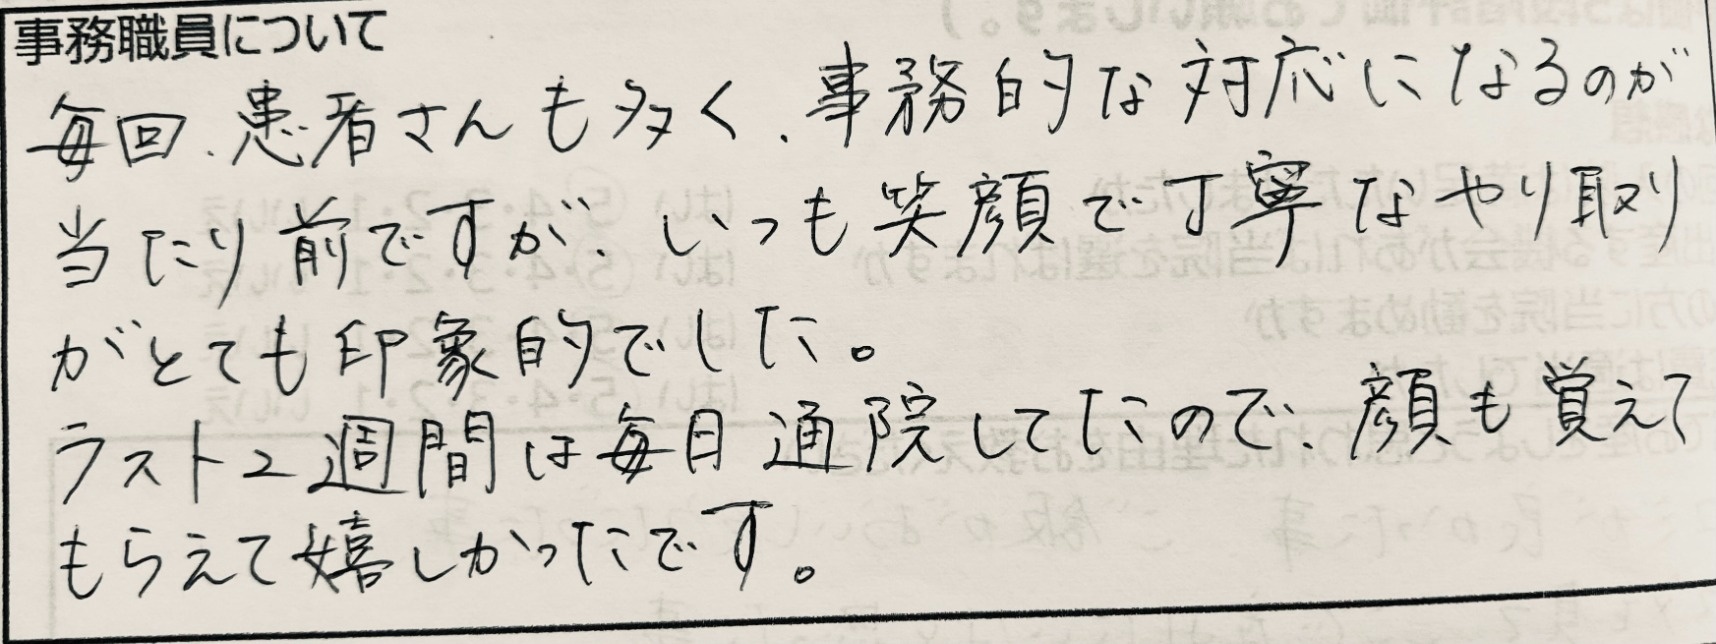 事務職員について
毎回、患者さんも多く、事務的な対応になるのが
当たり前ですが、いつも笑顔で丁寧なやり取り
がとても印象的でした。
ラスト2週間は毎日通院してたので、顔も覚えて
もらえて嬉しかったです。